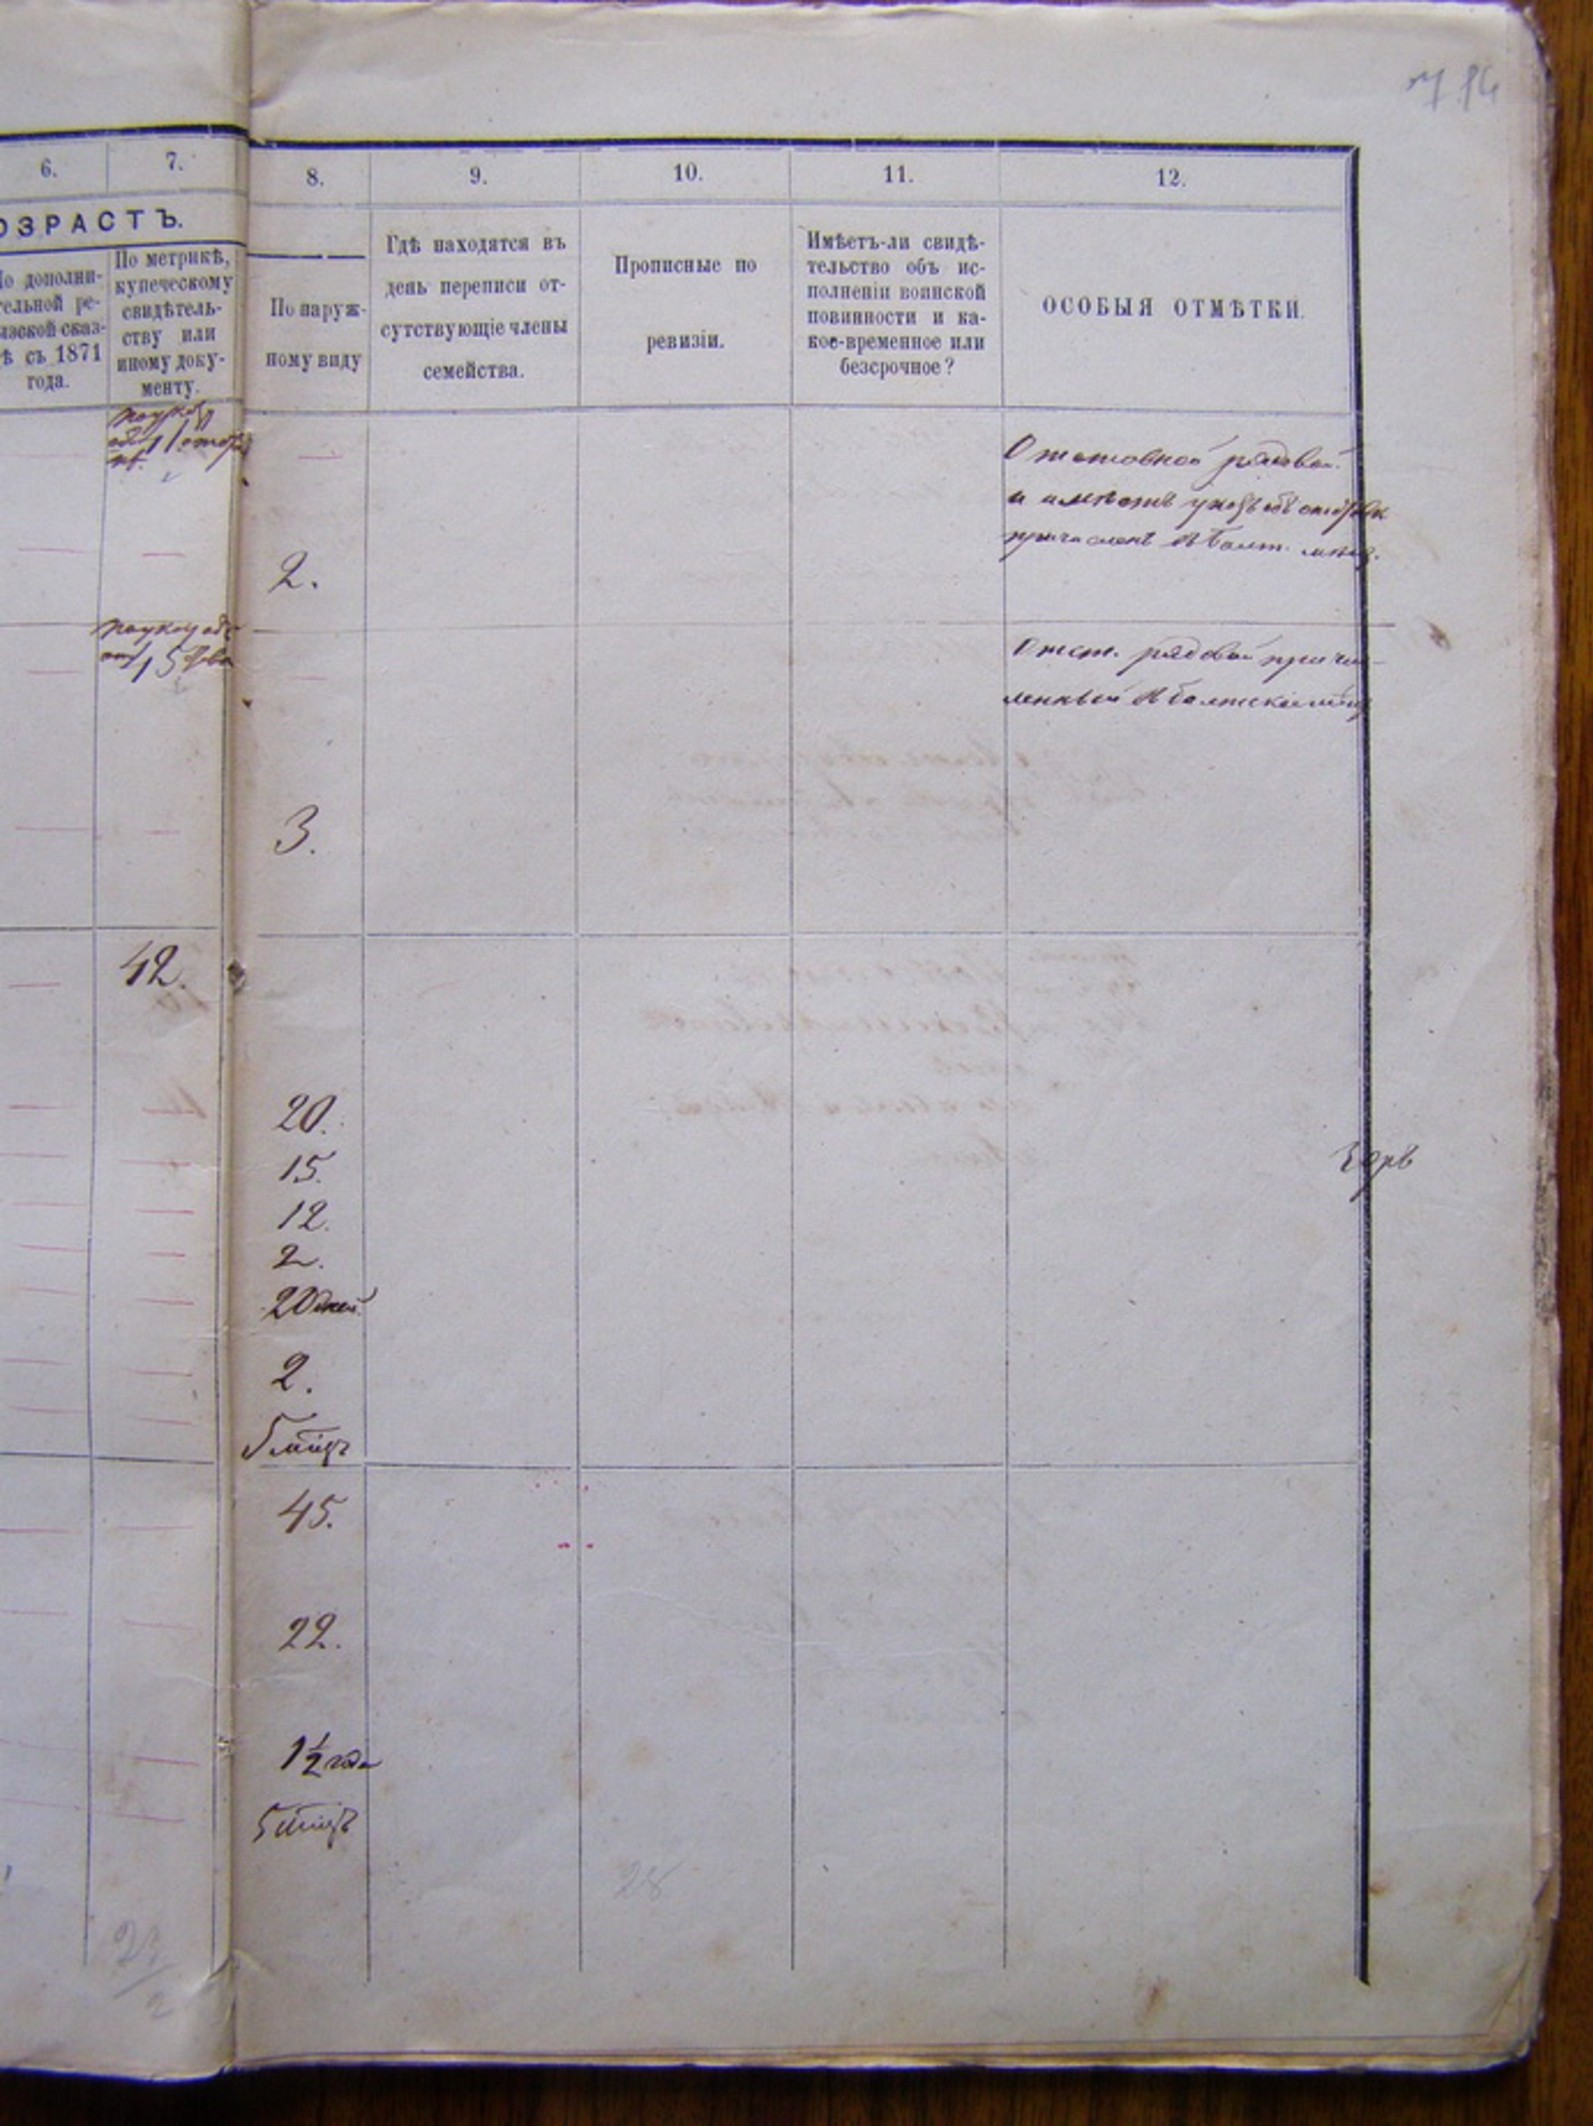 6.
7.
8.
9.
10.
11.
12.
ОЗРАСТЪ.
По дополни-
тельной ре-
визской сказ-
ѣ съ 1871
года.
По метрикѣ,
купеческому
свидѣтель-
ству или
иному доку-
менту.
По наруж-
ному виду
Гдѣ находятся въ
день переписи от-
сутствующіе члены
семейства.
Прописные по
ревизіи.
Имѣетъ-ли свидѣ-
тельство объ ис-
полненіи воинской
повинности и ка-
кое-временное или
безсрочное?
ОСОБЫЯ ОТМѢТКИ.
Отставной рядовой
и имѣетъ указъ объ отставкѣ
причисленъ въ Балт. мѣщ.
2.
Отст. рядовой причис-
ленный въ балтскіе мѣщ
3.
42.
20.
15.
12.
2.
20 дней
2.
5 мѣц
45.
22.
1½ года
5 мѣцъ
28